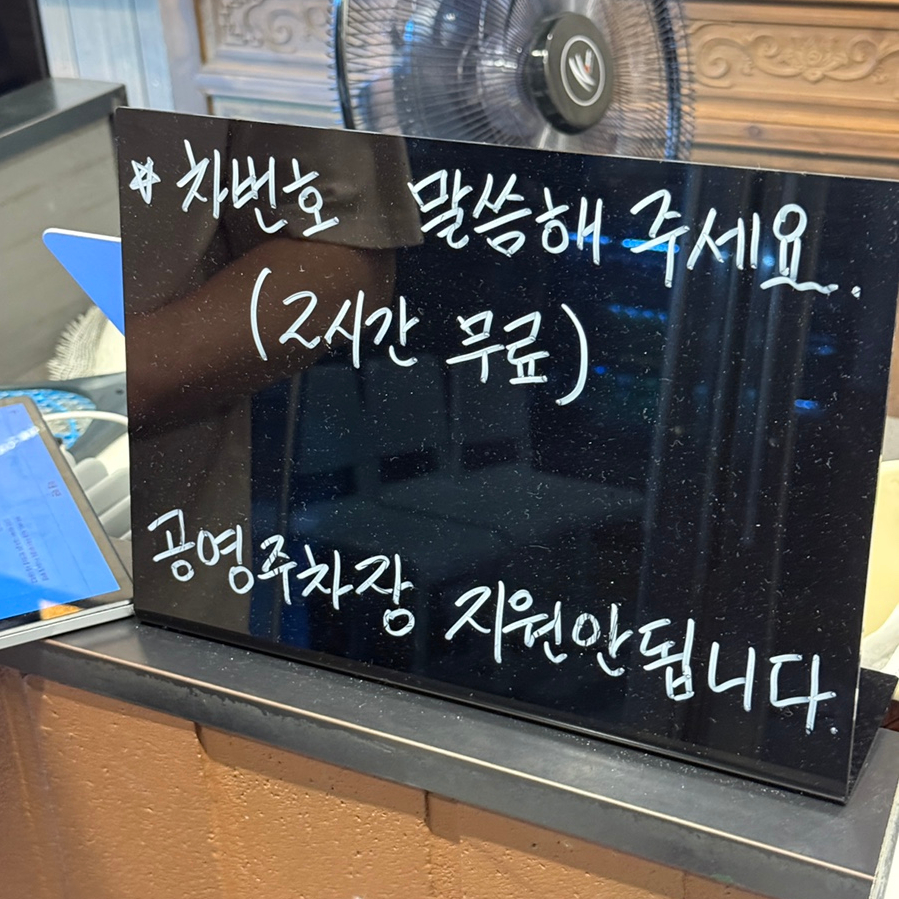 ☆ 차번호 말씀해 주세요.
(2시간 무료)
공영주차장 지원안됩니다.